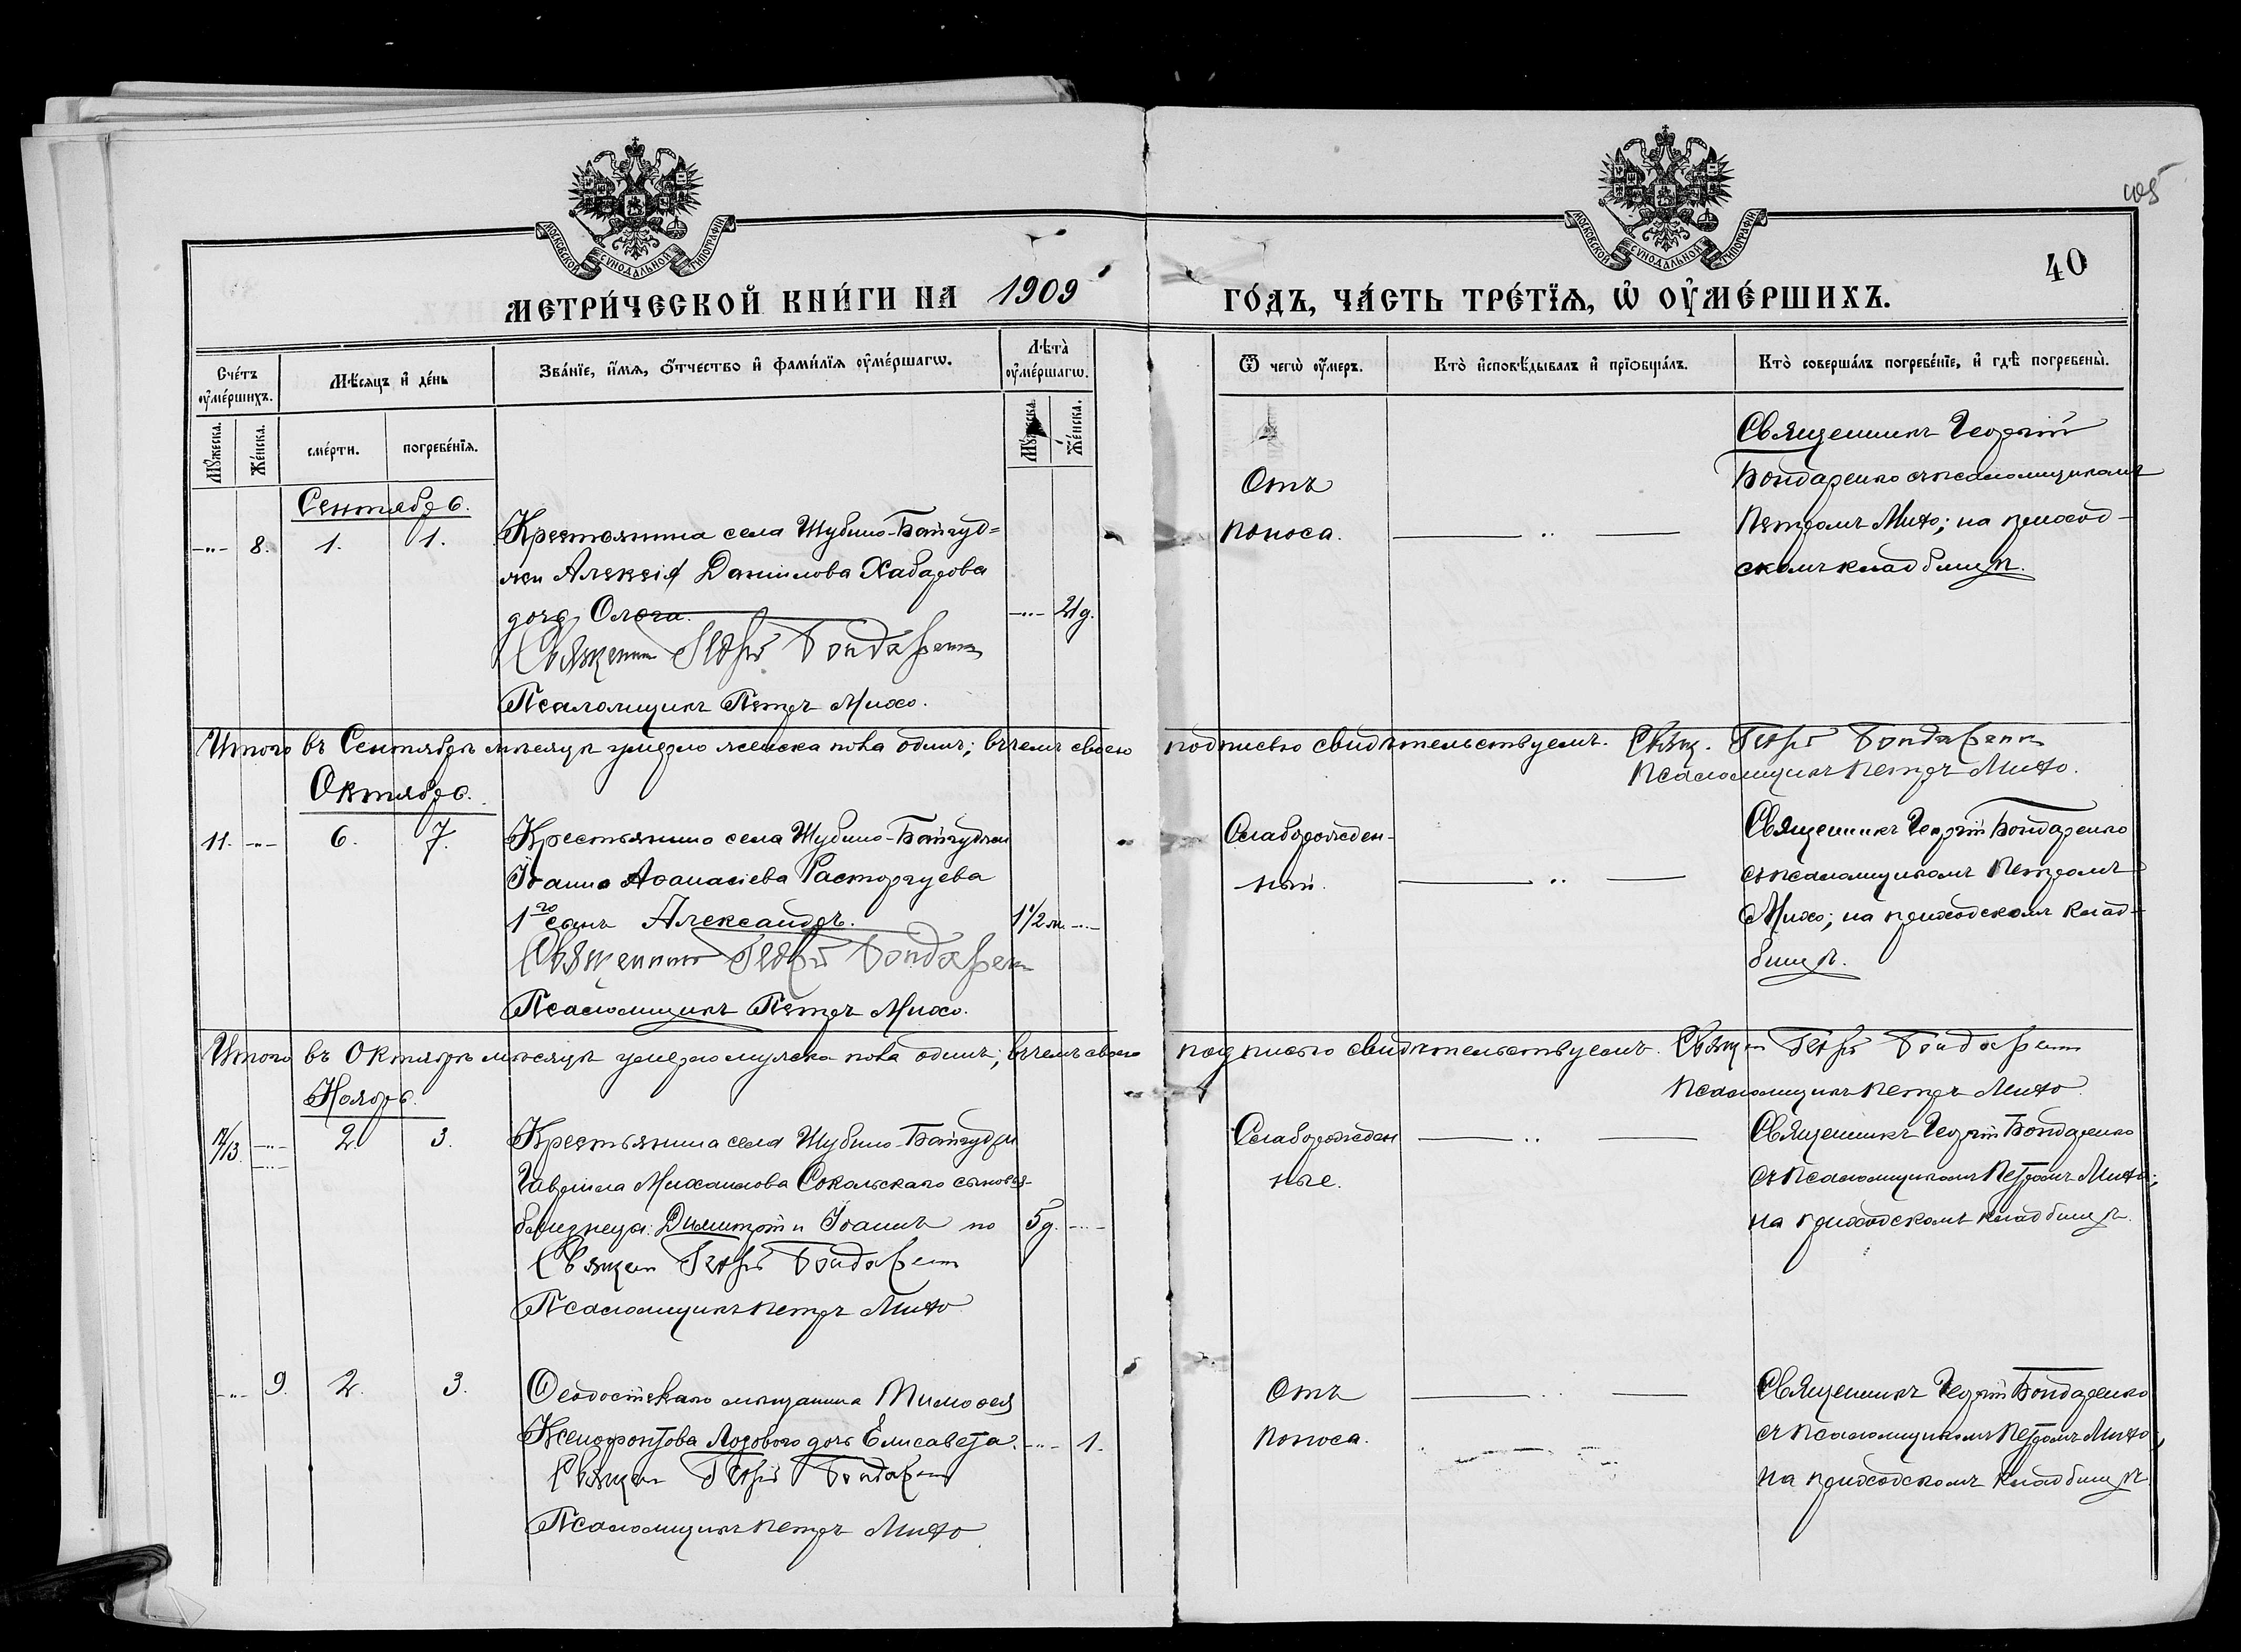 МОСКОВСКОЙ СУНОДАЛЬНОЙ ТИПОГРАФІИ
МОСКОВСКОЙ СУНОДАЛЬНОЙ ТИПОГРАФІИ
405
40
МЕТРИ́ЧЕСКОЙ КНИ́ГИ НА 1909 ГО́ДЪ, ЧА́СТЬ ТРЕ́ТЇѦ, Ѡ҆ ОУ҆МЕ́РШИХЪ.
Сче́тъ оу҆ме́ршихъ.
Мѣ́сяцъ и҆ де́нь
Зва́нїе, и҆́мѧ, ѻ҆́тчество и҆ фами́лїѧ оу҆ме́ршагѡ.
Лѣта̀ оу҆ме́ршагѡ.
Ѿ чегѡ̀ оу҆́меръ.
Кто̀ и҆сповѣ́дывалъ и҆ прїѡбща́лъ.
Кто̀ соверша́лъ погребе́нїе, и҆ гдѣ̀ погребены̀.
Мꙋ́жеска.
Же́нска.
сме́рти.
погребе́нїѧ.
Мꙋ́жеска.
Же́нска.
Сентябрь.
8. 1. 1.
Крестьянина села Шубино-Байгуд-
жи Алексія Даніилова Хабарова
дочь Ольга. 21д.
Священник Георгій Бондаренко
Псаломщикъ Петръ Михо.
Отъ
поноса.
Священникъ Георгій
Бондаренко съ псаломщикомъ
Петромъ Михо; на приход-
скомъ кладбищѣ.
Итого въ Сентябрѣ мѣсяцѣ умерло женска пола одинъ; въ чемъ своею подписью свидѣтельствуемъ. Свящ. Георгій Бондаренко
Псаломщикъ Петръ Михо.
Октябрь.
11. 6. 7.
Крестьянина села Шубино-Байгуджи
Іоанна Аѳанасіева Расторгуева
1го сынъ Александръ. 1 1/2 м.
Священник Георгій Бондаренко
Псаломщикъ Петръ Михо.
Слаборожден-
ный.
Священникъ Георгій Бондаренко
съ псаломщикомъ Петромъ
Михо; на приходскомъ клад-
бищѣ.
Итого въ Октябрѣ мѣсяцѣ умерло мужска пола одинъ; въ чемъ своею подписью свидѣтельствуемъ. Священ Георгій Бондаренко
Псаломщикъ Петръ Михо
Ноябрь.
12/13. 2. 3.
Крестьянина села Шубино-Байгуджи
Гавріила Михаилова Сокольскаго сыновья-
близнеца: Димитрій и Іоаннъ по 5д.
Священ Георгій Бондаренко
Псаломщикъ Петръ Михо
Слаборожден
ные.
Священникъ Георгій Бондаренко
съ псаломщикомъ Петромъ Михо;
на приходскомъ кладбищѣ.
9. 2. 3.
Ѳеодосійскаго мѣщанина Тимоѳея
Ксенофонтова Лозового дочь Елисавета. 1.
Священ Георгій Бондаренко
Псаломщикъ Петръ Михо
Отъ
поноса.
Священникъ Георгій Бондаренко
съ псаломщикомъ Петромъ Михо,
на приходскомъ кладбищѣ